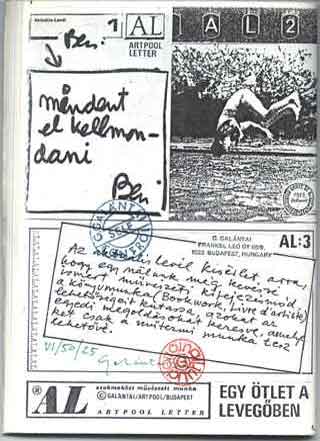 Ben 1
AL
ARTPOOL
LETTER
A L 2
mindent
el kell mon-
dani
Ben
G. GALÁNTAI
FRANKEL LEO ÚT 68/B.
1023 BUDAPEST, HUNGARY
AL:3
Az aktuális levél kísérlet arra,
hogy egy nálunk még kevéssé
ismert művészeti kifejezésmód,
a könyvmunka (Bookwork, livre d'artiste)
lehetőségeit kutassa, azokat az
egyedi megoldásokat keresve, amelye-
ket csak a műtermi munka tesz
lehetővé.
VI/50/25
Galántai
AL
sokszorosított művészeti munka
© GALÁNTAI/ARTPOOL/BUDAPEST
ARTPOOL LETTER
EGY ÖTLET A
LEVEGŐBEN